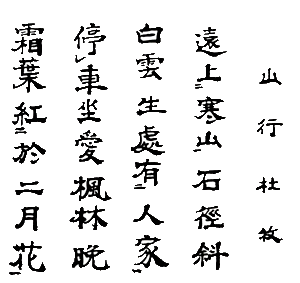 山行 杜牧
遠上寒山石徑斜
白雲生處有人家
停車坐愛楓林晚
霜葉紅於二月花